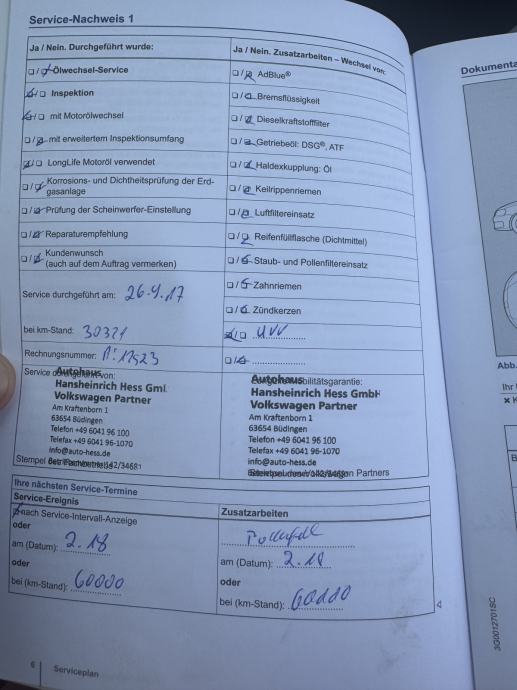 Service-Nachweis 1
Ja / Nein. Durchgeführt wurde:
Ja / Nein. Zusatzarbeiten – Wechsel von:
Ölwechsel-Service
AdBlue®
Inspektion
Bremsflüssigkeit
mit Motorölwechsel
Dieselkraftstofffilter
mit erweitertem Inspektionsumfang
Getriebeöl: DSG®, ATF
LongLife Motoröl verwendet
Haldexkupplung: Öl
Korrosions- und Dichtheitsprüfung der Erd-
gasanlage
Keilrippenriemen
Prüfung der Scheinwerfer-Einstellung
Luftfiltereinsatz
Reparaturempfehlung
Reifenfüllflasche (Dichtmittel)
Kundenwunsch
(auch auf dem Auftrag vermerken)
Staub- und Pollenfiltereinsatz
Zahnriemen
Service durchgeführt am: 26.4.17
Zündkerzen
bei km-Stand: 30321
UVV
Rechnungsnummer:
Autohaus
Hansheinrich Hess GmbH
Volkswagen Partner
Am Kraftenborn 1
63654 Büdingen
Telefon +49 6041 96 100
Telefax +49 6041 96-1070
info@auto-hess.de
Autohaus
Hansheinrich Hess GmbH
Volkswagen Partner
Am Kraftenborn 1
63654 Büdingen
Telefon +49 6041 96 100
Telefax +49 6041 96-1070
info@auto-hess.de
Ihre nächsten Service-Termine
Service-Ereignis
Zusatzarbeiten
nach Service-Intervall-Anzeige
oder
am (Datum): 2.18
am (Datum): 2.18
oder
oder
bei (km-Stand): 60000
bei (km-Stand): 60000
6 Serviceplan
Dokumenta
Abb.
Ihr
3G0012701SC